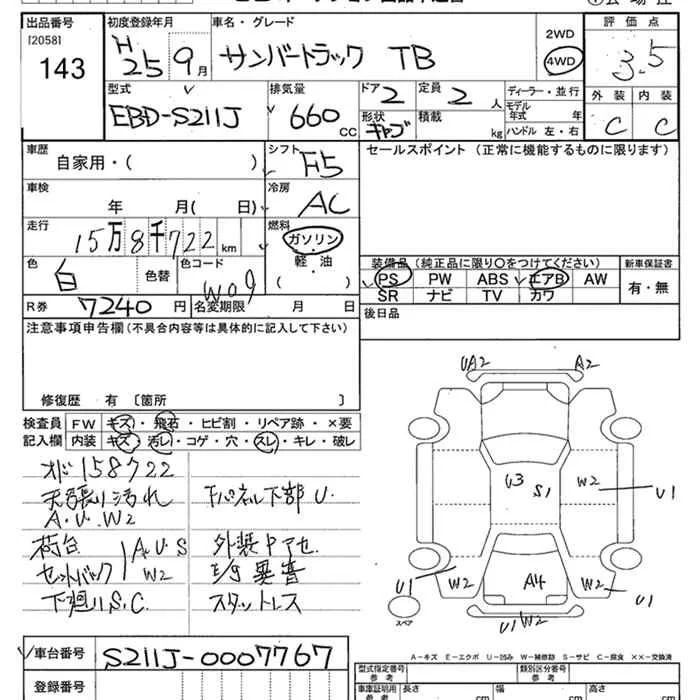 出品番号 初度登録年月 車名・グレード 評価点
[2058] 143 H25 9月 サンバートラック TB 2WD 4WD 3.5
型式 排気量 ドア 定員 ディーラー・並行 外装 内装
EBD-S211J 660 CC 2 2人 モデル年式 年 C C
形状 キャブ 積載 kg ハンドル 左・右
車歴 シフト セールスポイント (正常に機能するものに限ります)
自家用・( ) F5
車検 冷房
年 月( 日) AC
走行 燃料
15万8千722km ガソリン
色 色替 色コード 軽・油 装備品 (純正品に限り○をつけてください) 新車保証書
白 W09 ( ) PS PW ABS エアB AW 有・無
SR ナビ TV カワ
R券 7240円 名変期限 月 日 後日品
注意事項申告欄 (不具合内容等は具体的に記入して下さい)
修復歴 有 [箇所 ]
検査員 FW キズ・飛石・ヒビ割・リペア跡・×要
記入欄 内装 キズ・汚レ・コゲ・穴・スレ・キレ・破レ
オド158722
天張り汚れ 下パネル下部U.
A.U.W2
荷台 A.U.S
セットバック W2
下廻りS.C. スタットレス
UA2 A2
U3 S1 W2 U1
U1 W2 A4 W2 U1
U1W2
スペア
A-キズ E-エクボ U-凹み W-補修跡 S-サビ C-腐食 ××-交換済
車台番号 S211J-0007767 型式指定番号 参考 類別区分番号 参考
登録番号 車庫証明用 参考 長さ cm 幅 cm 高さ cm